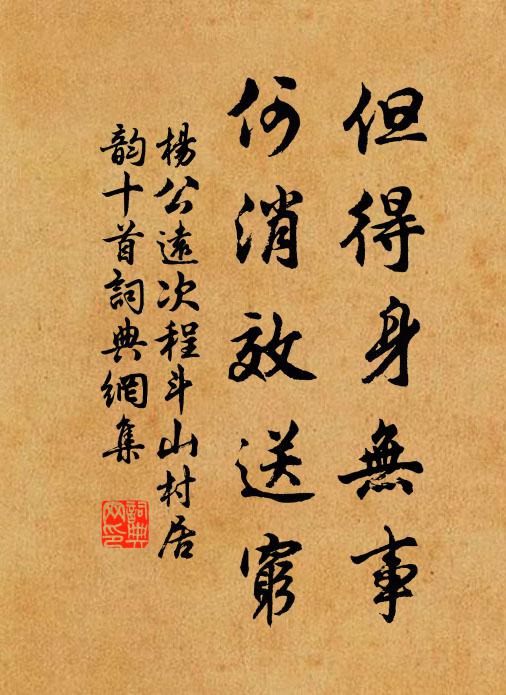 但得身無事
何消效送窮
楊公遠次程斗山村居
韵十首詞典網集
詞典
网印